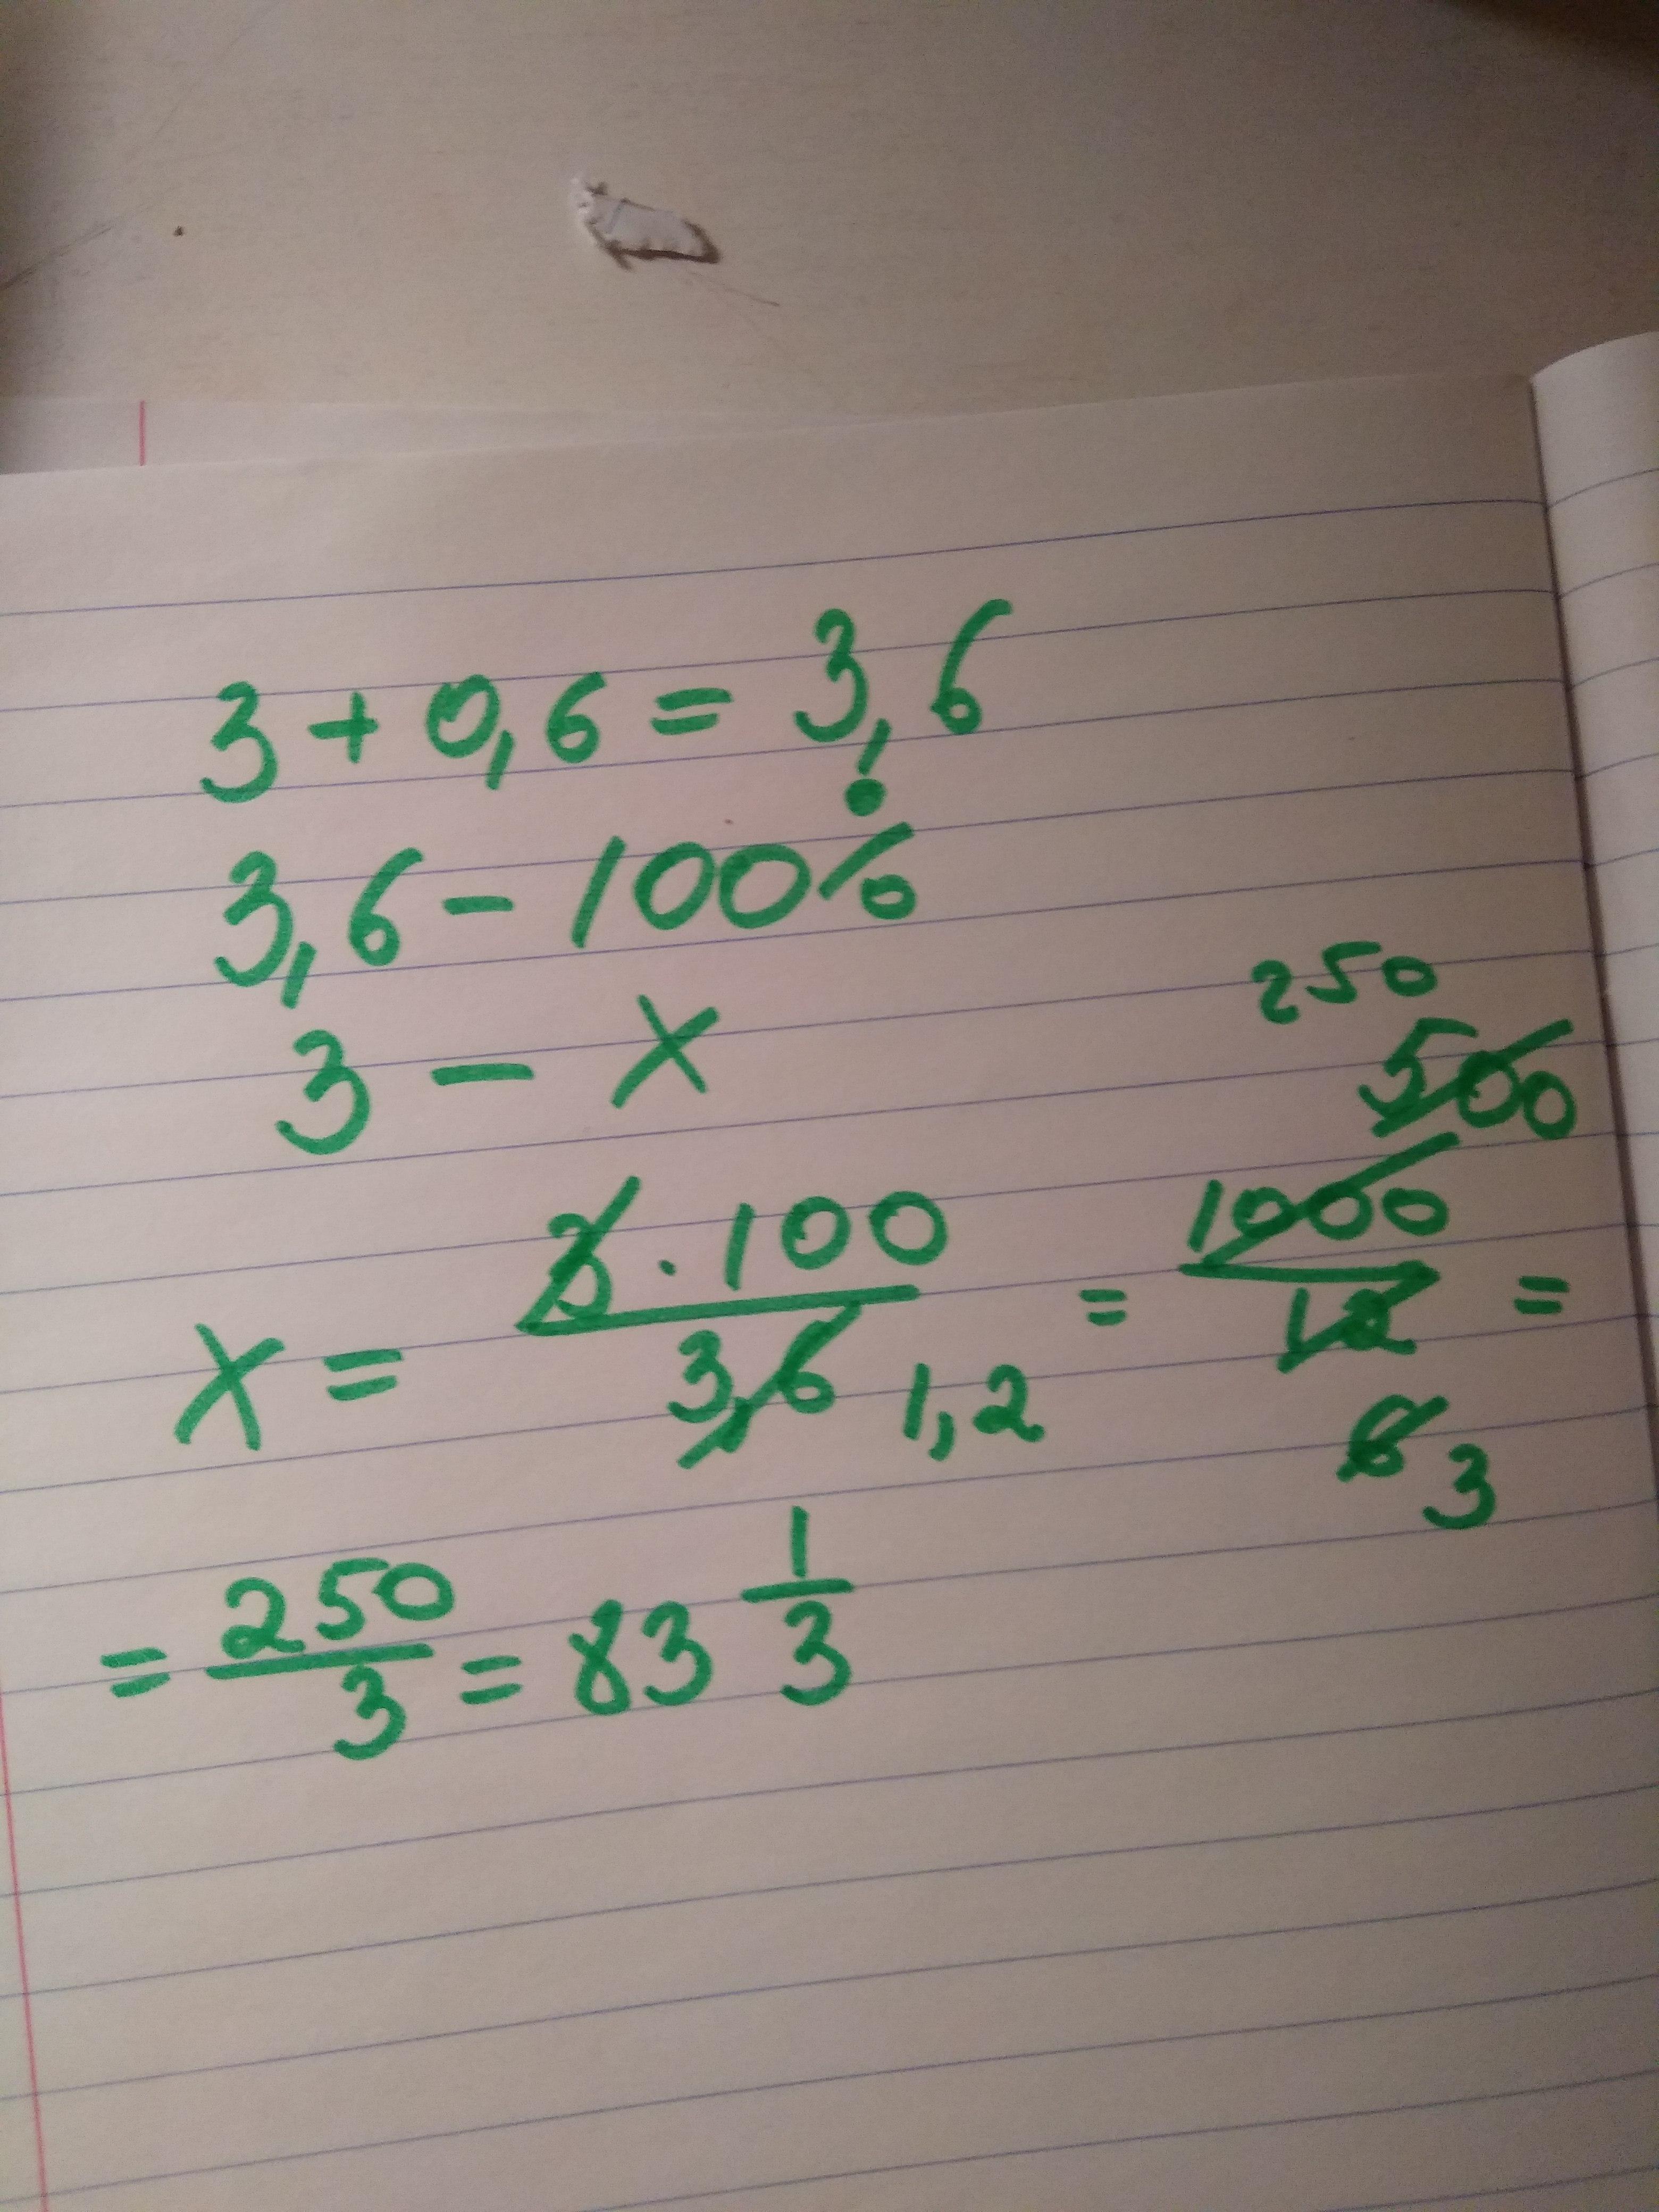 3 + 0,6 = 3,6
3,6 - 100%
3 - x
x = 3 · 100 / 3,6 1,2 = 250 500 1000 / 12 6 3 =
= 250/3 = 83 1/3